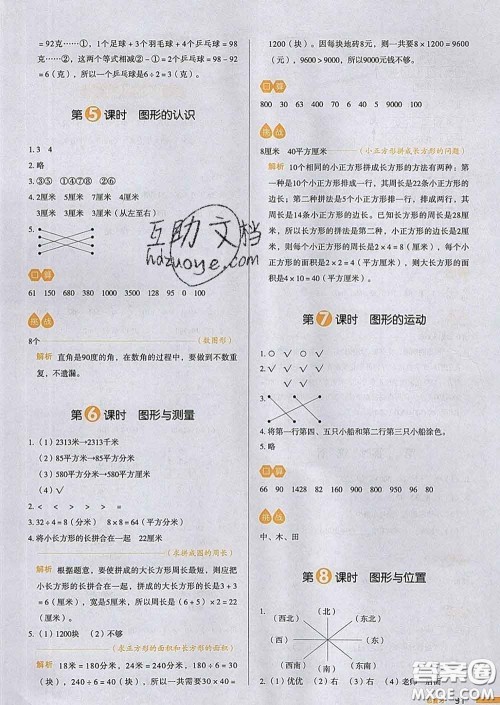 = 92克……①，1个足球+3个羽毛球+4个乒乓球= 98
克……②，这两个等式相减②-①= 2个乒乓球= 98 - 92
= 6（克），所以一个乒乓球6÷2 = 3（克）。
第5课时　图形的认识
1. 3　4
2. 略
3. ③⑤　①④⑦⑧　②⑥
4. 2厘米　5厘米　7厘米　4厘米
3厘米　3厘米　3厘米（从左至右）
5.
口算
61　150　680　1000　3500　128　95　0　100
挑战
8个
（数图形）
解析　直角是90度的角，在数角的过程中，要做到不数重
复，不遗漏。
第6课时　图形与测量
1.（1）2313米→2313千米
（2）85平方米→85平方厘米
（3）580平方分米→580平方厘米
（4）√
2. <　<　>　>　>　=
3. 32÷4 = 8（分米）　8×8 = 64（平方分米）
4. 将小长方形的长拼合在一起　22厘米
（求拼成图的周长）
解析　根据题意，要使拼成的大长方形周长最短，则应把
小长方形的长拼合在一起，拼成的大长方形的长是3 + 3
= 6（厘米），宽是5厘米，所以周长是（6 + 5）×2 = 22
（厘米）。
5.（1）1200块　（2）不够
（求正方形的面积和长方形的面积）
解析　18米= 180分米，24米= 240分米，180÷6 = 30
（块），240÷6 = 40（块），所以一共需要30×40 =
1200（块）。因每块地砖8元，则一共要8×1200 = 9600
（元），9600 > 9000，所以9000元钱不够。
口算
800　30　63　400　70　900　1500　240　400
挑战
8厘米　40平方厘米
（小正方形拼成长方形的问题）
解析　10个相同的小正方形拼成长方形的方法有两种：第
一种是10个小正方形排成一行，其周长是22个小正方形的
边长；第二种是每行排5个小正方形，排成两行，其周
长是14个小正方形的边长。已知长方形的周长是28厘米，
所以第二种方法正确，即小正方形的边长是28÷14 = 2
（厘米），所以每个小正方形的周长是2×4 = 8（厘米），每
个小正方形的面积是2×2 = 4（平方厘米），则大长方形的面
积是4×10 = 40（平方厘米）。
第7课时　图形的运动
1. ○　√　√　○
2. √　○　○　√　√
3.
4. 将第一行第四、五只小船和第二行第三只小船涂色。
5. 略
口算
66　90　1428　180　8000　800　960　9　60
挑战
中、木、田
第8课时　图形与位置
1.
（北）
（西北）　（东北）
（西）　（东）
（西南）　（东南）
（南）
互助文档
hdzuoye.com
答案圈
MXQE.COM